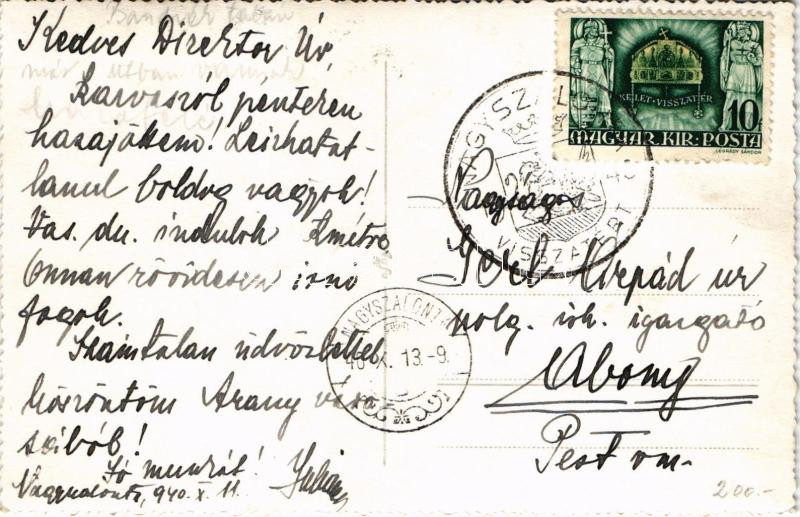 Kedves Direktor Úr,
Szarvasról pénteken
hazajöttem! Leírhatat-
lanul boldog vagyok!
Vas. du. indulok
Onnan rövidesen írni
fogok.
Számtalan üdvözlettel
köszöntöm Arany váro
sából!
Jó munkát!
Nagyszalonta, 940.X.11.
KELET·VISSZATÉR
10f
MAGYAR·KIR·POSTA
LÉGRÁDY SÁNDOR
NAGYSZALONTA
VISSZATÉRT
NAGYSZALONTA
40 X. 13.-9.
Nagyságos
Árpád úr
polg. isk. igazgató
Abony
Pest vm.
200.-